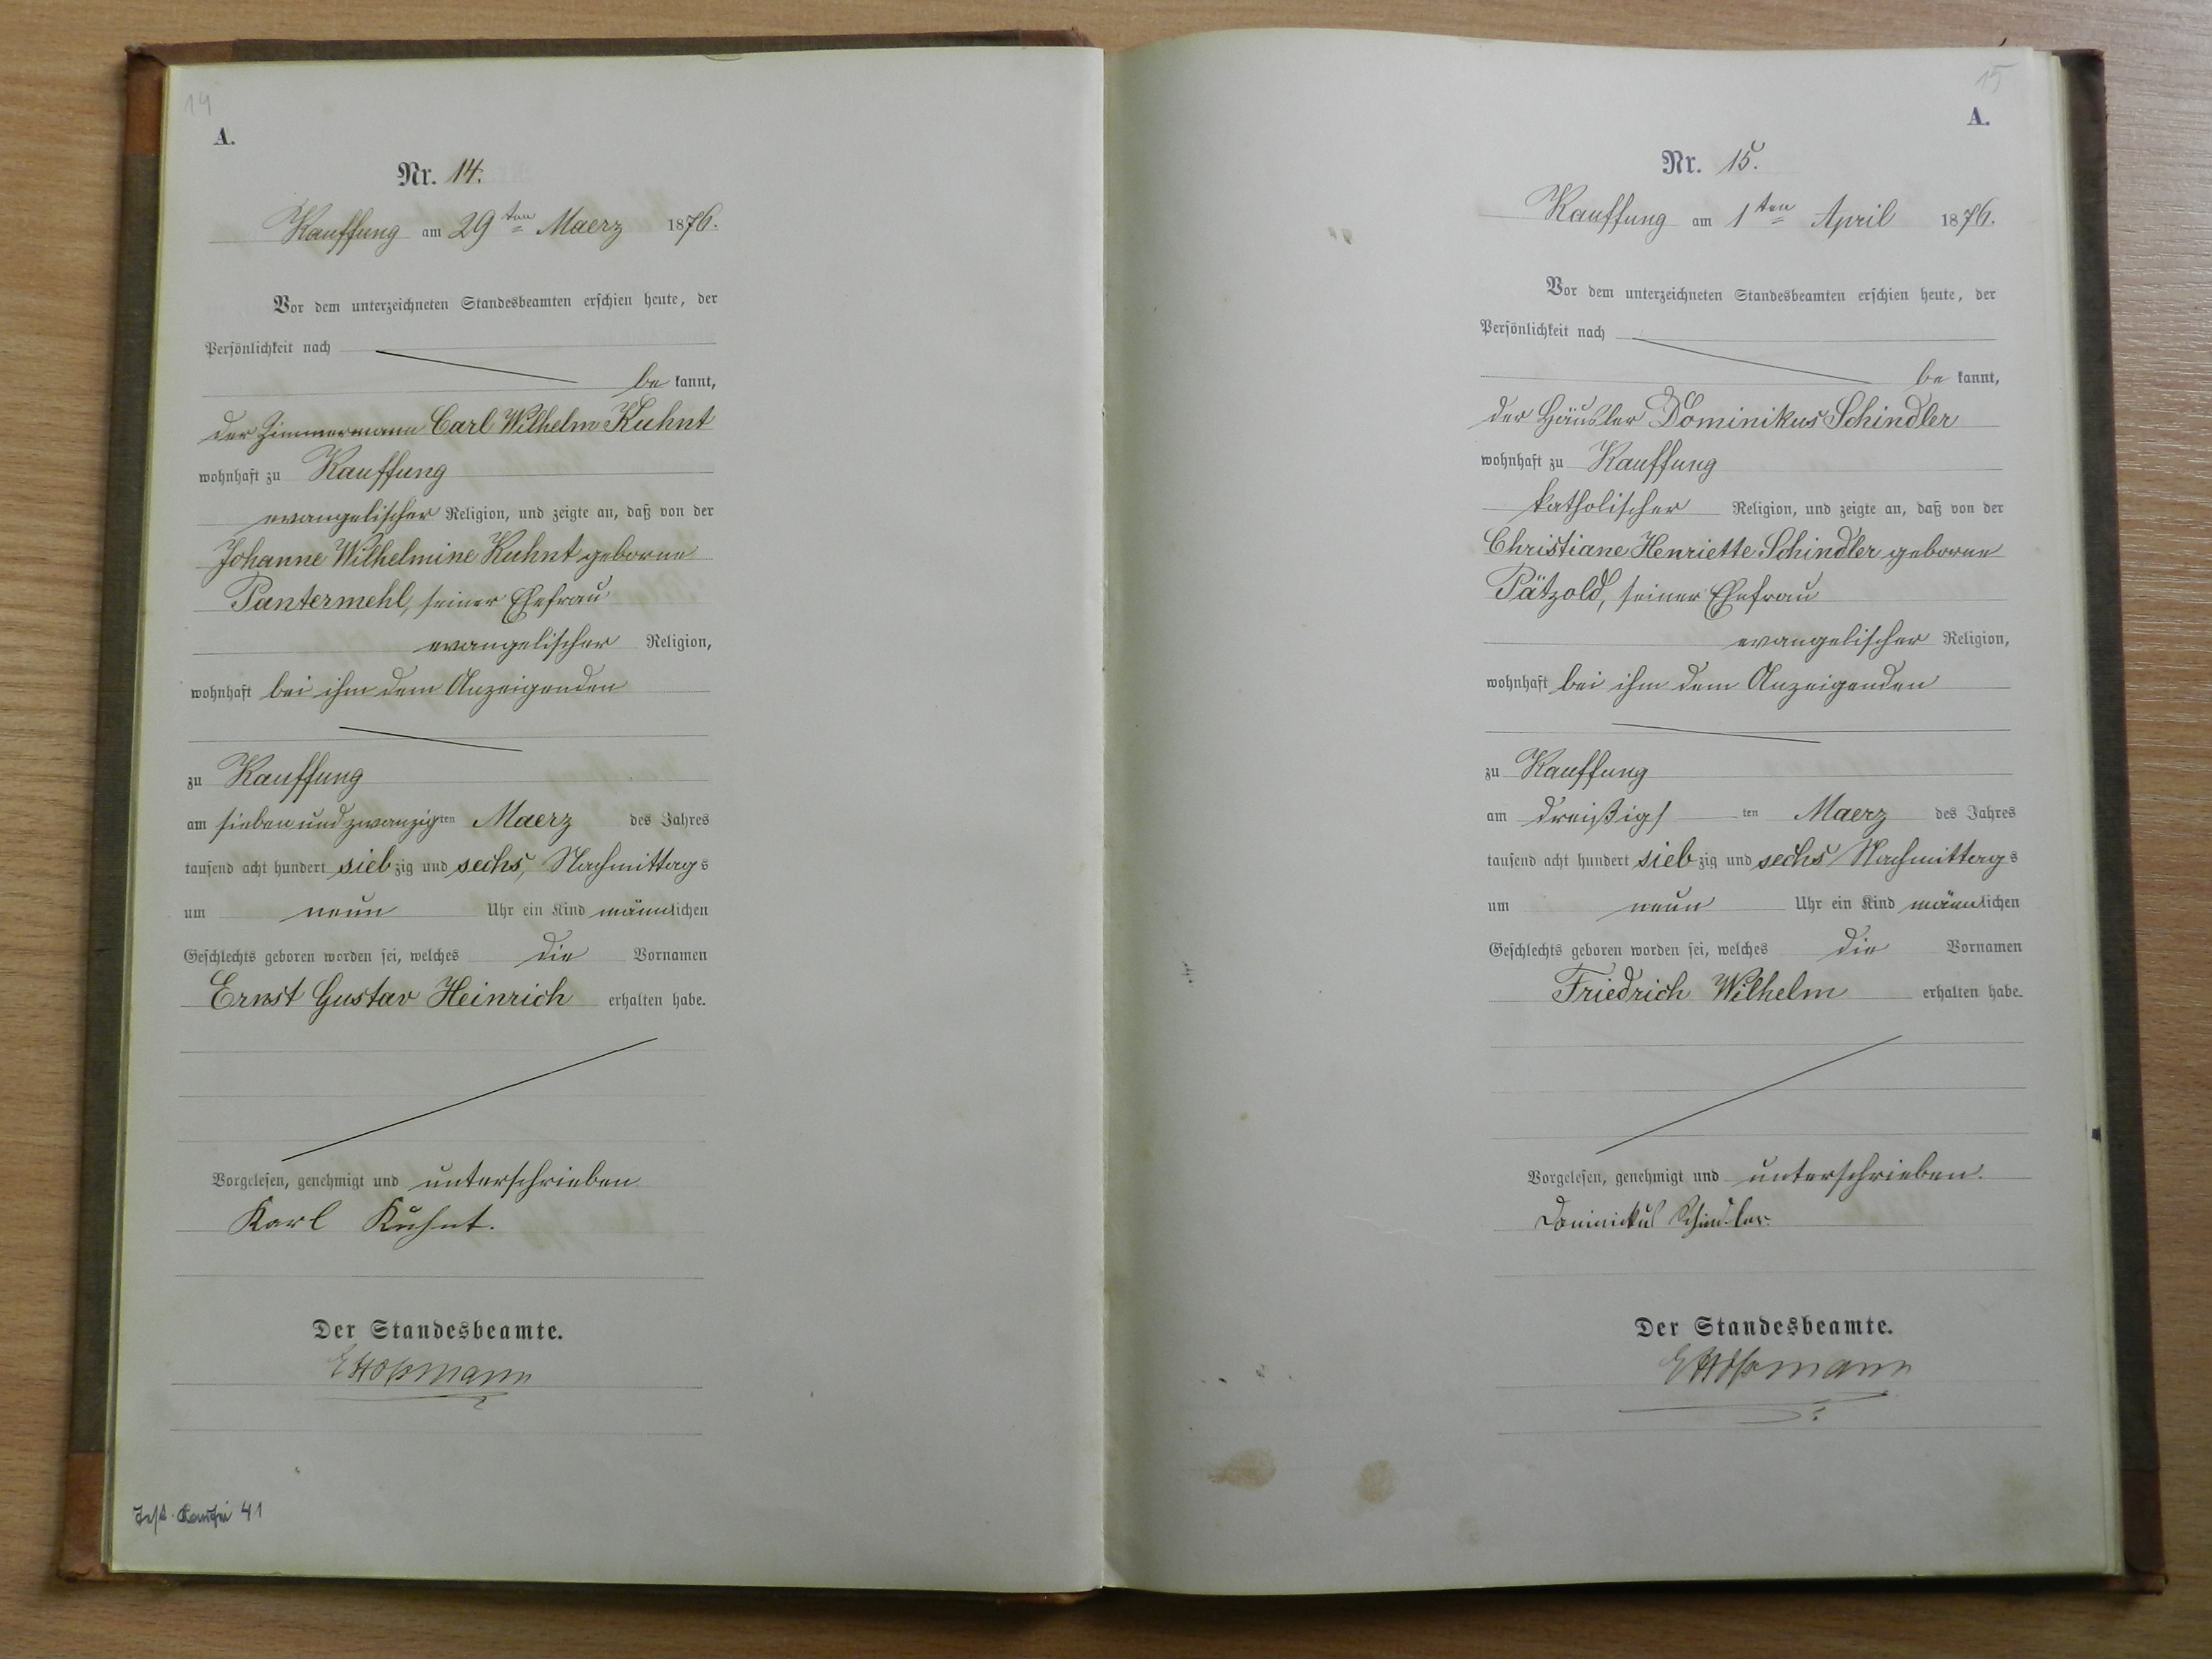 14
A.
Nr. 14.
Kauffung am 29ten Maerz 1876.
Vor dem unterzeichneten Standesbeamten erschien heute, der
Persönlichkeit nach
be kannt,
der Zimmermann Carl Wilhelm Kuhnt
wohnhaft zu Kauffung
evangelischer Religion, und zeigte an, daß von der
Johanne Wilhelmine Kuhnt geborne
Pantermehl, seiner Ehefrau
evangelischer Religion,
wohnhaft bei ihm dem Anzeigenden
zu Kauffung
am sieben und zwanzigten Maerz des Jahres
tausend acht hundert siebzig und sechs, Nachmittags
um neun Uhr ein Kind männlichen
Geschlechts geboren worden sei, welches die Vornamen
Ernst Gustav Heinrich erhalten habe.
Vorgelesen, genehmigt und unterschrieben
Karl Kuhnt.
Der Standesbeamte.
41
15
A.
Nr. 15.
Kauffung am 1ten April 1876.
Vor dem unterzeichneten Standesbeamten erschien heute, der
Persönlichkeit nach
be kannt,
der Häusler Dominikus Schindler
wohnhaft zu Kauffung
katholischer Religion, und zeigte an, daß von der
Christiane Henriette Schindler geborne
Pätzold, seiner Ehefrau
evangelischer Religion,
wohnhaft bei ihm dem Anzeigenden
zu Kauffung
am dreißigs ten Maerz des Jahres
tausend acht hundert siebzig und sechs Nachmittags
um neun Uhr ein Kind männlichen
Geschlechts geboren worden sei, welches die Vornamen
Friedrich Wilhelm erhalten habe.
Vorgelesen, genehmigt und unterschrieben.
Dominickus Schindler.
Der Standesbeamte.